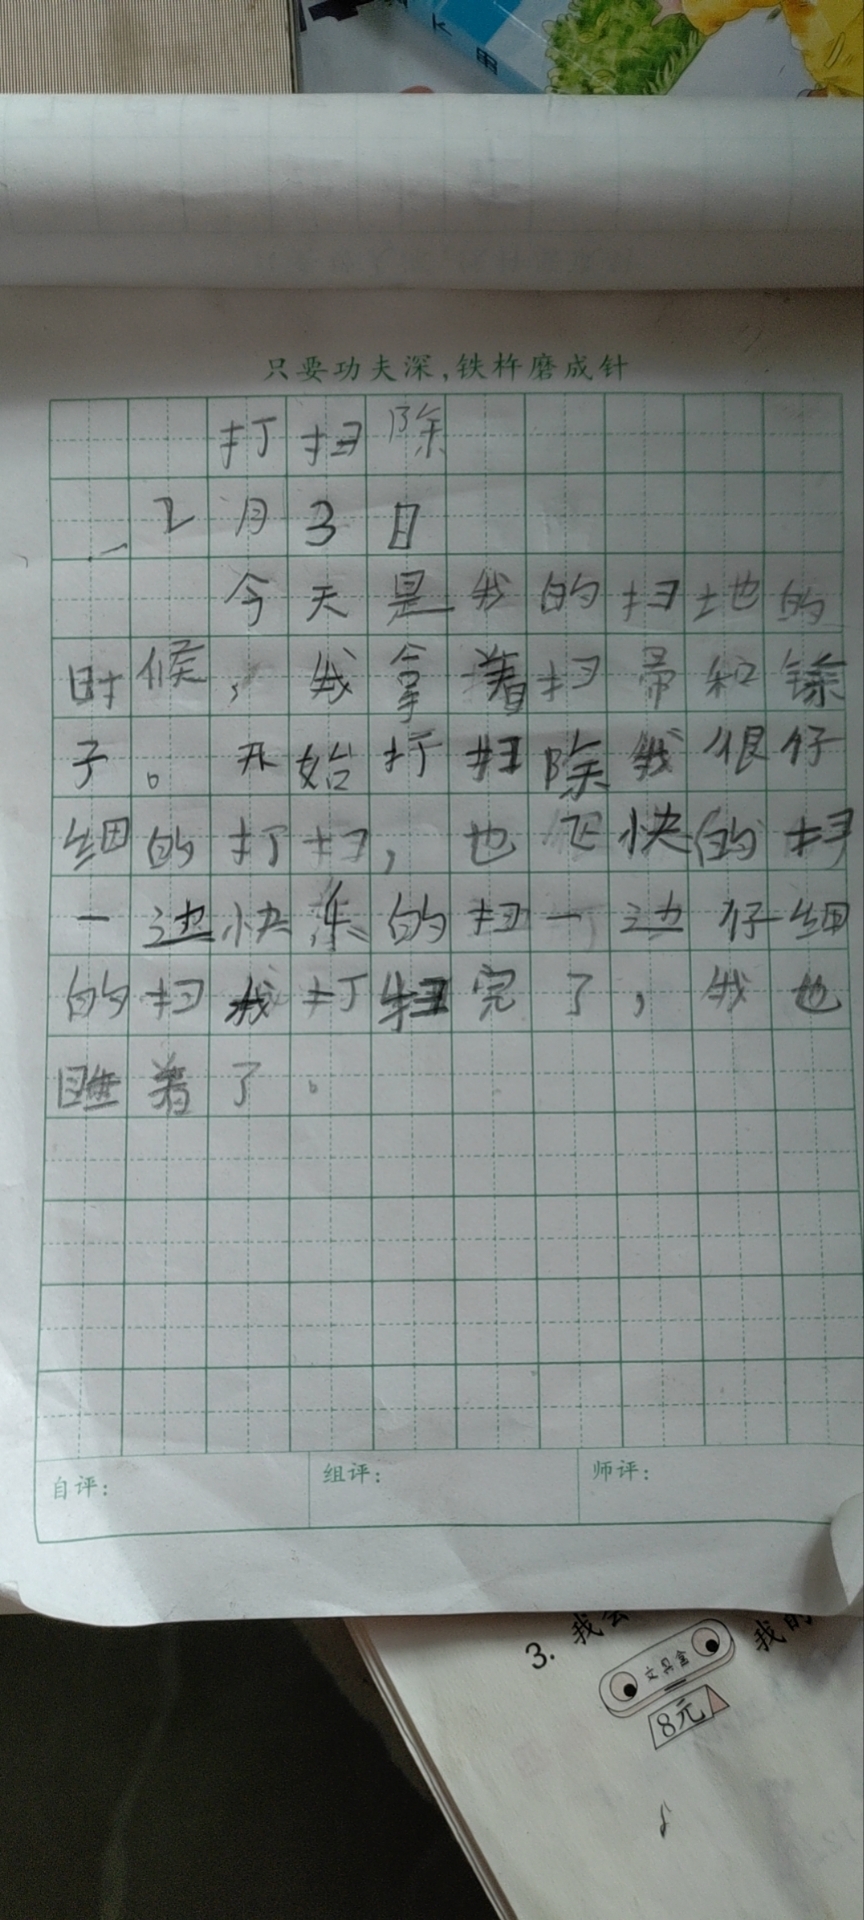 只要功夫深,铁杵磨成针
打扫除
2月3日
今天是我的扫地的
时候，我拿着扫帚和
子。开始打扫除我很仔
细的打扫，也飞快的扫
一边快乐的扫一边仔细
的扫我打扫完了，我也
睡着了。
自评: 组评: 师评:
3. 我会
我的
文具盒
8元